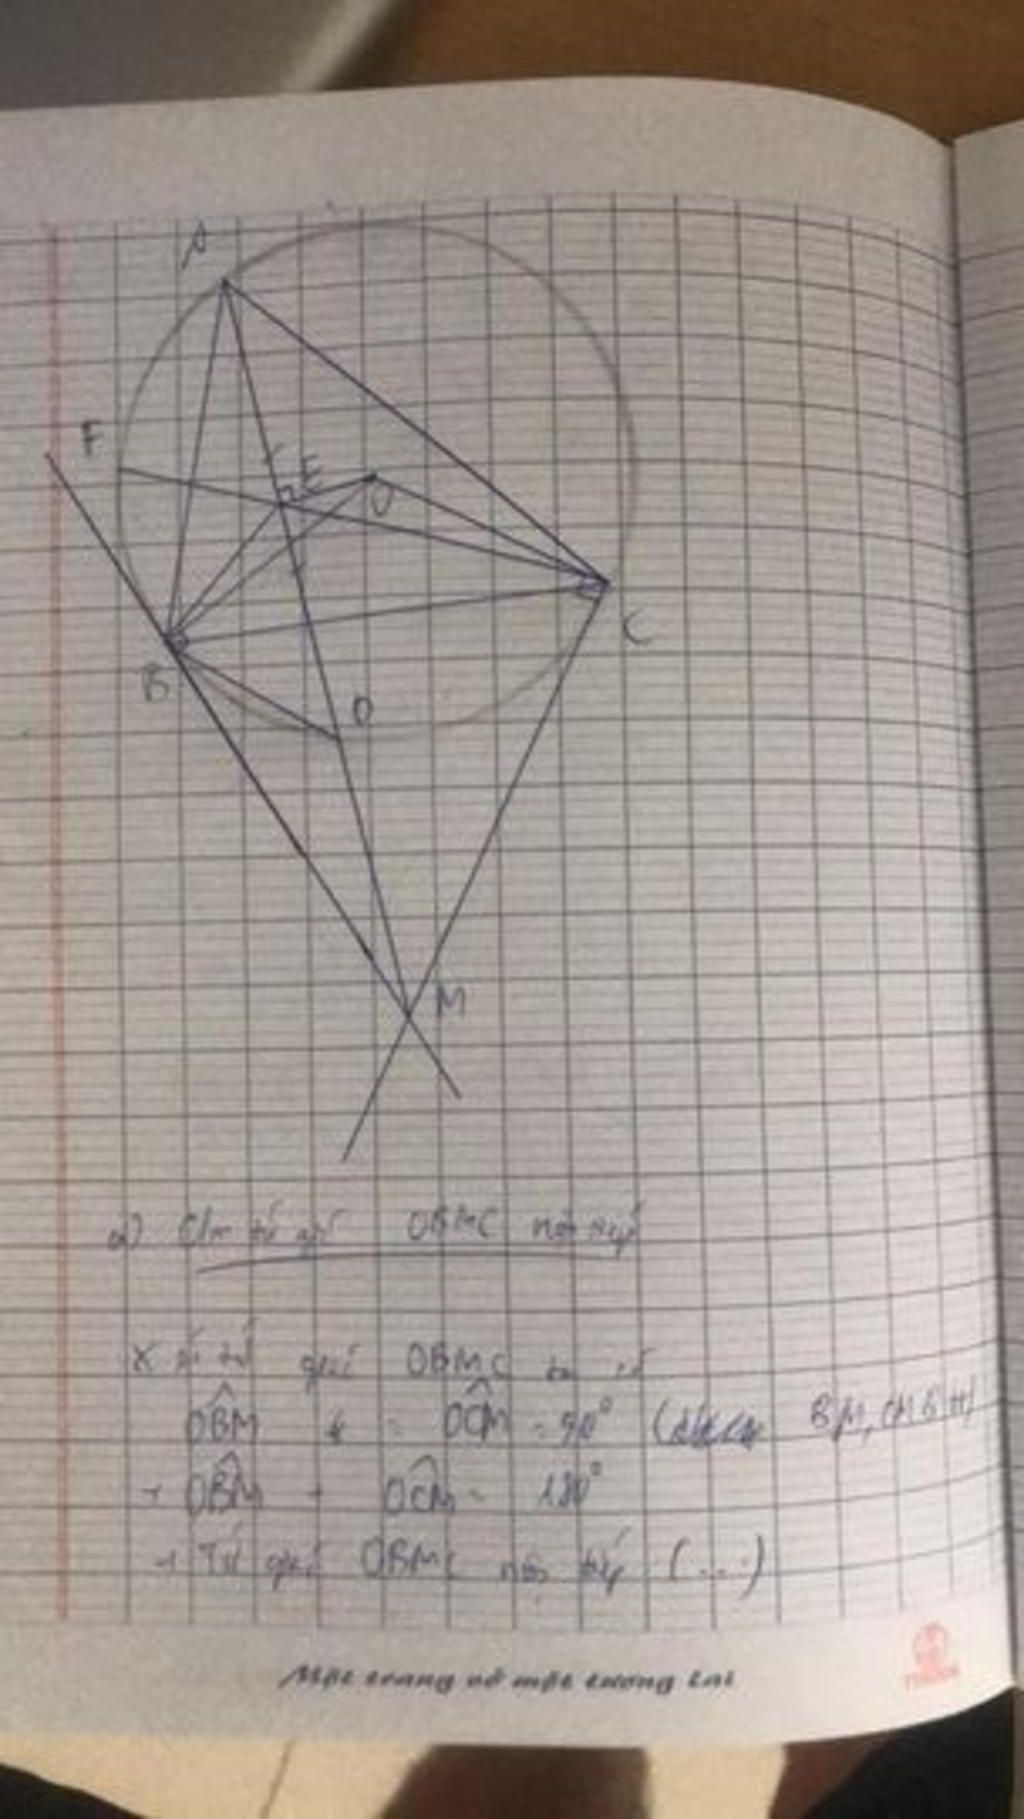 A
F
E
O
B
C
D
M
a) C/m tứ giác OBMC nội tiếp
Xét tứ giác OBMC ta có
OBM = OCM = 90° ( BM, CM
→ OBM + OCM = 180°
→ Tứ giác OBMC nội tiếp (...)
Một trang vở một tương lai